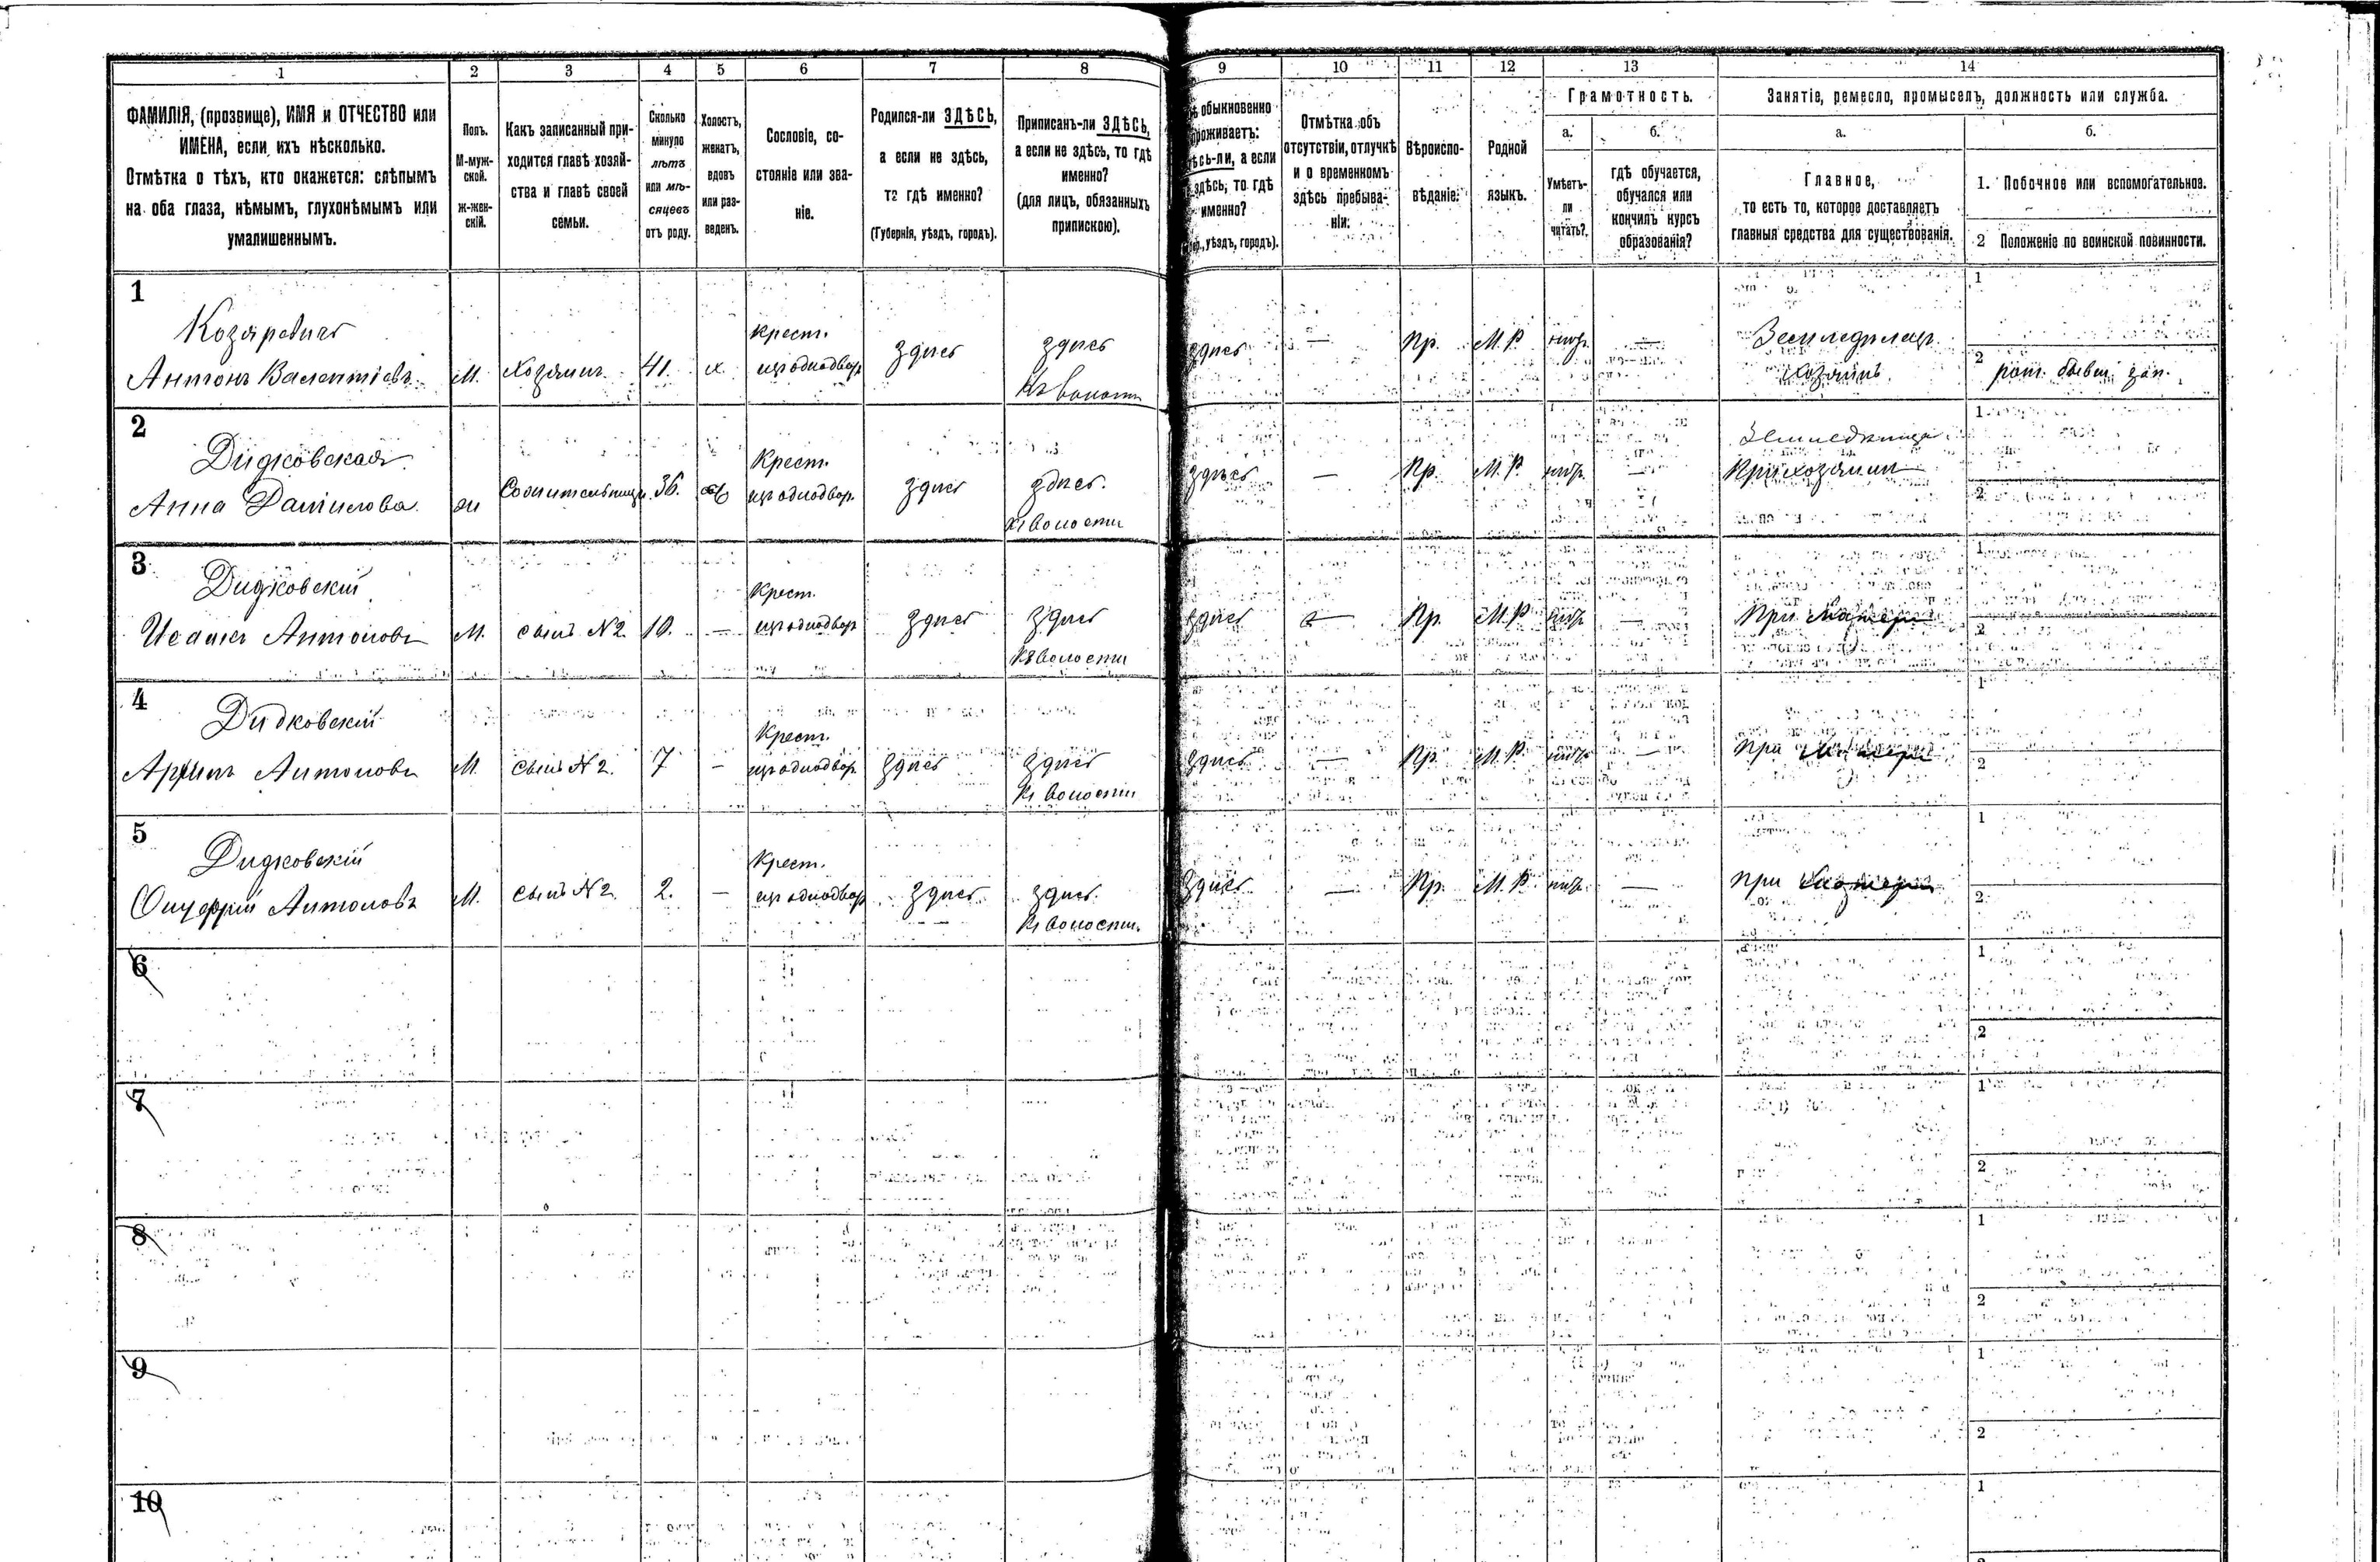 1 2 3 4 5 6 7 8 9 10 11 12 13 14
ФАМИЛІЯ, (прозвище), ИМЯ и ОТЧЕСТВО или
ИМЕНА, если ихъ нѣсколько.
Отмѣтка о тѣхъ, кто окажется: слѣпымъ
на оба глаза, нѣмымъ, глухонѣмымъ или
умалишеннымъ.
Полъ.
М-муж-
ской.
ж-жен-
скій.
Какъ записанный при-
ходится главѣ хозяй-
ства и главѣ своей
семьи.
Сколько
минуло
лѣтъ
или мѣ-
сяцевъ
отъ роду.
Холостъ,
женатъ,
вдовъ
или раз-
веденъ.
Сословіе, со-
стояніе или зва-
ніе.
Родился-ли ЗДѢСЬ,
а если не здѣсь,
то гдѣ именно?
(Губернія, уѣздъ, городъ).
Приписанъ-ли ЗДѢСЬ,
а если не здѣсь, то гдѣ
именно?
(для лицъ, обязанныхъ
припискою).
обыкновенно
проживаетъ:
здѣсь-ли, а если
не здѣсь, то гдѣ
именно?
уѣздъ, городъ).
Отмѣтка объ
отсутствіи, отлучкѣ
и о временномъ
здѣсь пребыва-
ніи.
Вѣроиспо-
вѣданіе.
Родной
языкъ.
Грамотность.
а.
Умѣетъ-
ли
читать?
б.
гдѣ обучается,
обучался или
кончилъ курсъ
образованія?
Занятіе, ремесло, промыселъ, должность или служба.
а.
Главное,
то есть то, которое доставляетъ
главныя средства для существованія.
б.
1. Побочное или вспомогательное.
2 Положеніе по воинской повинности.
1
Козаревичъ
Антонъ Валентіевъ М. Хозяинъ 41. х. крест. изъ однодвор. здѣсь здѣсь къ волости здѣсь — Пр. М.Р. нѣтъ — Земледѣлецъ хозяинъ
1
2
2
Дидковская
Анна Данилова ж Сожительница 36. Крест. изъ однодвор. здѣсь здѣсь. къ волости здѣсь — Пр. М.Р. нѣтъ — При хозяинѣ
1
2
3
Дидковскій
Исаакъ Антоновъ М. сынъ №2. 10. — Крест. изъ однодвор. здѣсь здѣсь къ волости здѣсь — Пр. М.Р. нѣтъ — При матери
1
2
4
Дидковскій
Антоновъ М. сынъ №2. 7 — Крест. изъ однодвор. здѣсь здѣсь къ волости здѣсь — Пр. М.Р. нѣтъ — при матери
1
2
5
Дидковскій
Онуфрій Антоновъ М. сынъ №2. 2. — Крест. изъ однодвор. здѣсь здѣсь. къ волости. здѣсь — Пр. М.Р. нѣтъ — при матери
1
2
6
1
2
7
1
2
8
1
2
9
1
2
10
1